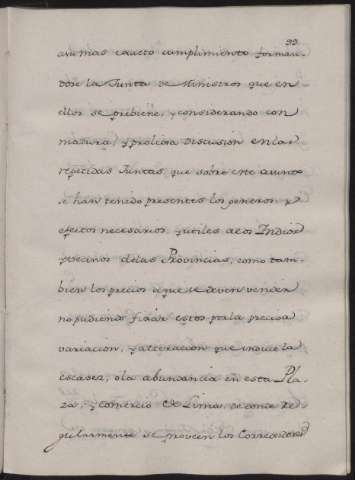 99
asu mas exacto cumplimiento forman
dose la Junta de Ministros que en
ellos se prebiene, y considerando con
madura, y prolixa discusion en las
repetidas Juntas, que sobre este asunto
se han tenido presentes los generos y
efectos necesarios, y utiles alos Indios
y vecinos delas Provincias, como tam-
bien los precios aque se deven vender
no pudiendo fixar estos por la precisa
variacion, y alteracion que induce la
escases, ola abundancia en esta Pla
za, y comercio de Lima, de donde Re
gularmente se proveen los Corregidores